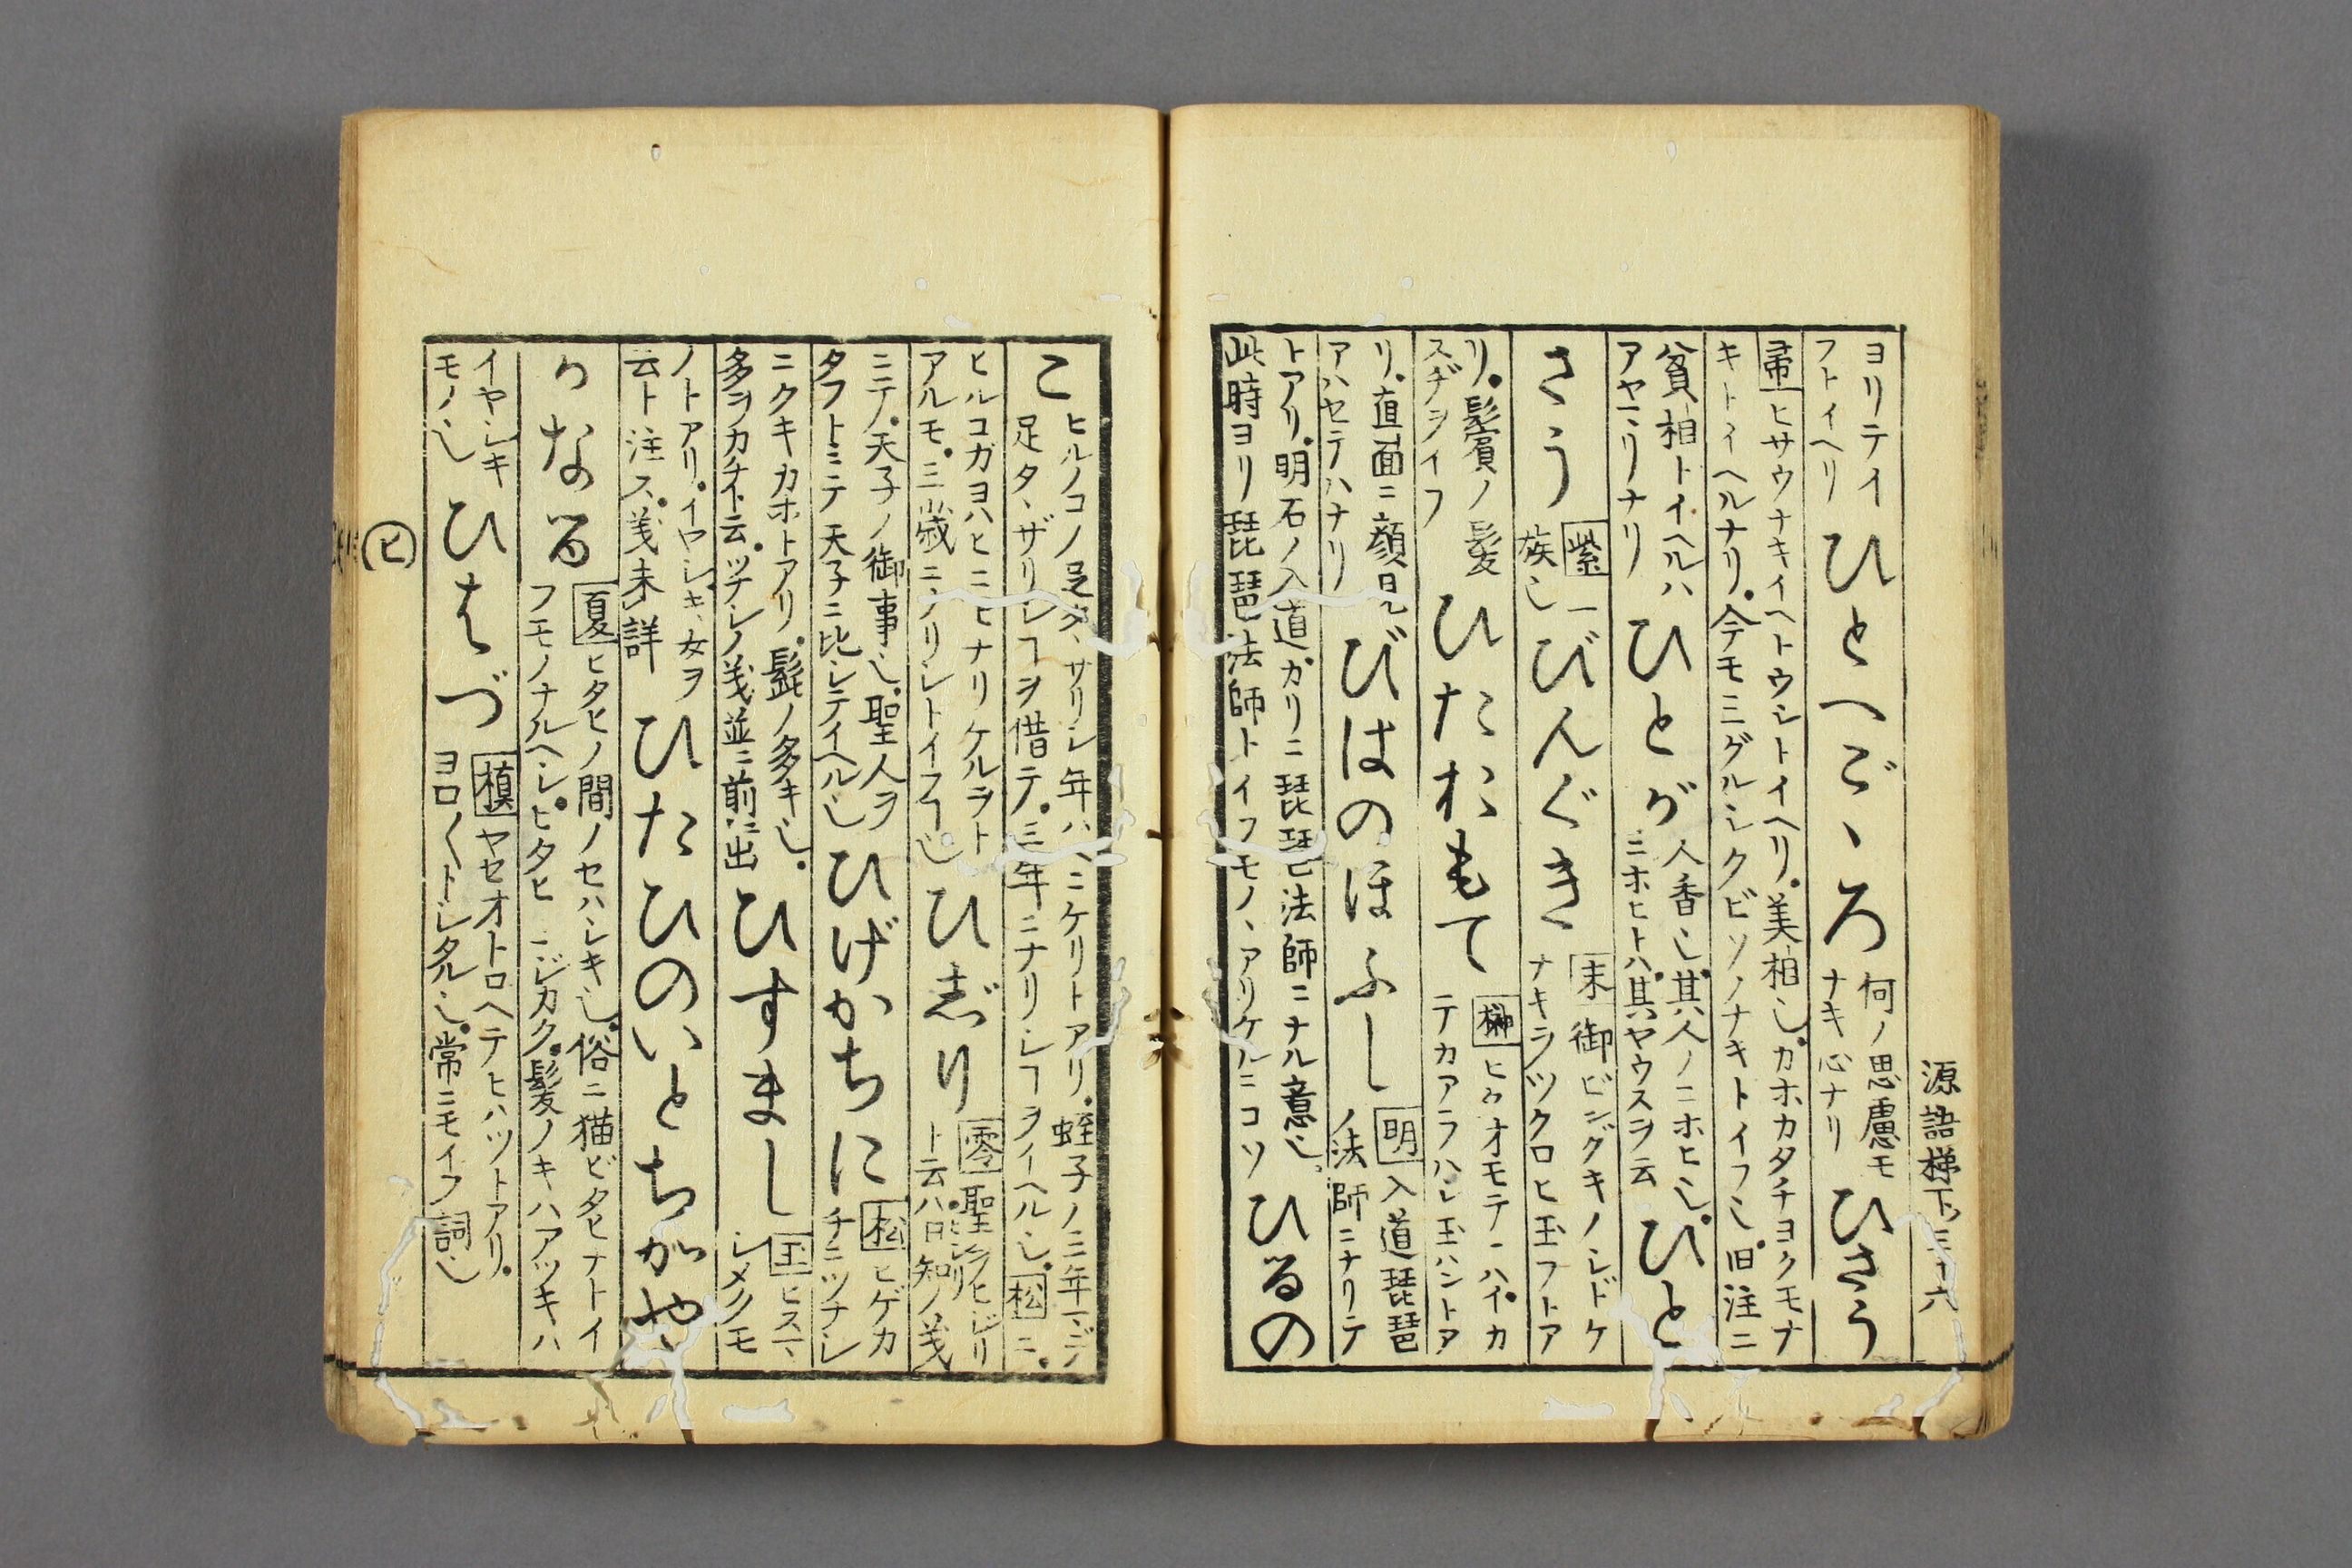 源語梯下 三十六
ヨリテイ
フトイヘリ
ひとへごゝろ
何ノ思慮モ
ナキ心ナリ
ひさう
帚ヒサウナキイヘトウシトイヘリ。美相也。カホカタチヨクモナ
キトイヘルナリ。今モミグルシクビソノナキトイフ也。旧注ニ
貧相トイヘルハ
アヤマリナリ
ひとが
人香也。其人ノニホヒ也。
ニホヒトハ。其ヤウスヲ云
ひと
さう
紫一
族也
びんぐき
末御ビングキノシドケ
ナキヲツクロヒ玉フトア
リ。鬢ノ髪
スヂヲイフ
ひたおもて
榊ヒタオモテニハイカ
テカアラハレ玉ハントア
リ。直面ニ顔見
アハセテハナリ
びはのほふし
明入道琵琶
ノ法師ニナリテ
トアリ。明石ノ入道カリニ琵琶法師ニナル意也。
此時ヨリ琵琶法師トイフモノヽアリケルニコソ
ひるの
こ
ヒルノコノ足タヽサリシ年ハヘニケリトアリ。蛭子ノ三年マデ
足タヽザリシヿヲ借テ。三年ニナリシヿヲイヘル也。松ニ。
ヒルコガヨハヒニヒナリケルヲト
アルモ。三歳ニナリシトイフヿ也
ひぢり
零聖ヲヒジリ
ト云ハ。日知ノ義
ニテ。天子ノ御事也。聖人ヲ
タフトミテ天子ニ比シテイヘル也
ひげかちに
松ヒゲカ
チニツナシ
ニクキカホトアリ。髭ノ多キ也。
多ヲカチト云。ツナシノ義並ニ前ニ出
ひすまし
玉ヒスマ
シメクモ
ノトアリ。イヤシキ女ヲ
云ト注ス。義未詳
ひたひのいとちかや
かなる
夏ヒタヒノ間ノセハシキ也。俗ニ猫ビタヒナトイ
フモノナルヘシ。ヒタヒ
ミジカク。髪ノキハアツキハ
イヤシキ
モノ也
ひはづ
槙ヤセオトロヘテヒハヅトアリ。
ヨロ〱トシタル也。常ニモイフ詞也
ヒ